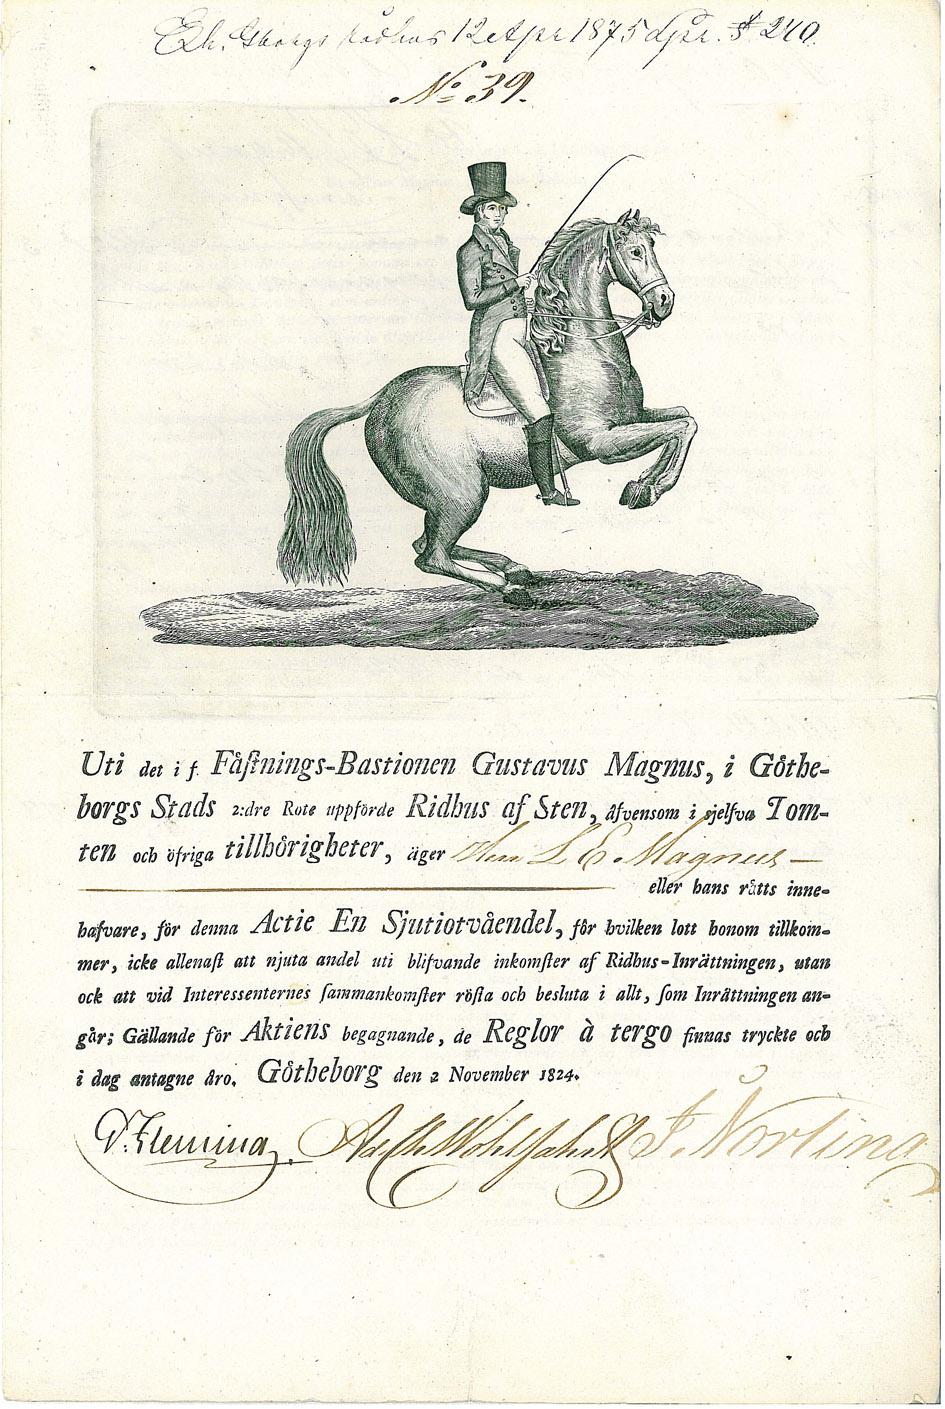 Exh. Gborgs rådhus 12 Apr 1875 § 240.
No 39.
Uti det i f. Fåſtnings-Bastionen Gustavus Magnus, i Göthe-
borgs Stads 2:dre Rote uppförde Ridhus af Sten, åfvensom i sjelfva Tom-
ten och öfriga tillhörigheter, äger Herr L E. Magnus —
eller hans rätts inne-
hafvare, för denna Actie En Sjutiotvåendel, för hvilken lott honom tillkom-
mer, icke allenaſt att njuta andel uti blifvande inkomſter af Ridhus-Inrättningen, utan
ock att vid Interessenternes ſammankomſter röſta och besluta i allt, ſom Inrättningen an-
går; Gällande för Aktiens begagnande, de Reglor à tergo finnas tryckte och
i dag antagne äro. Götheborg den 2 November 1824.
Flemming. J. Norling